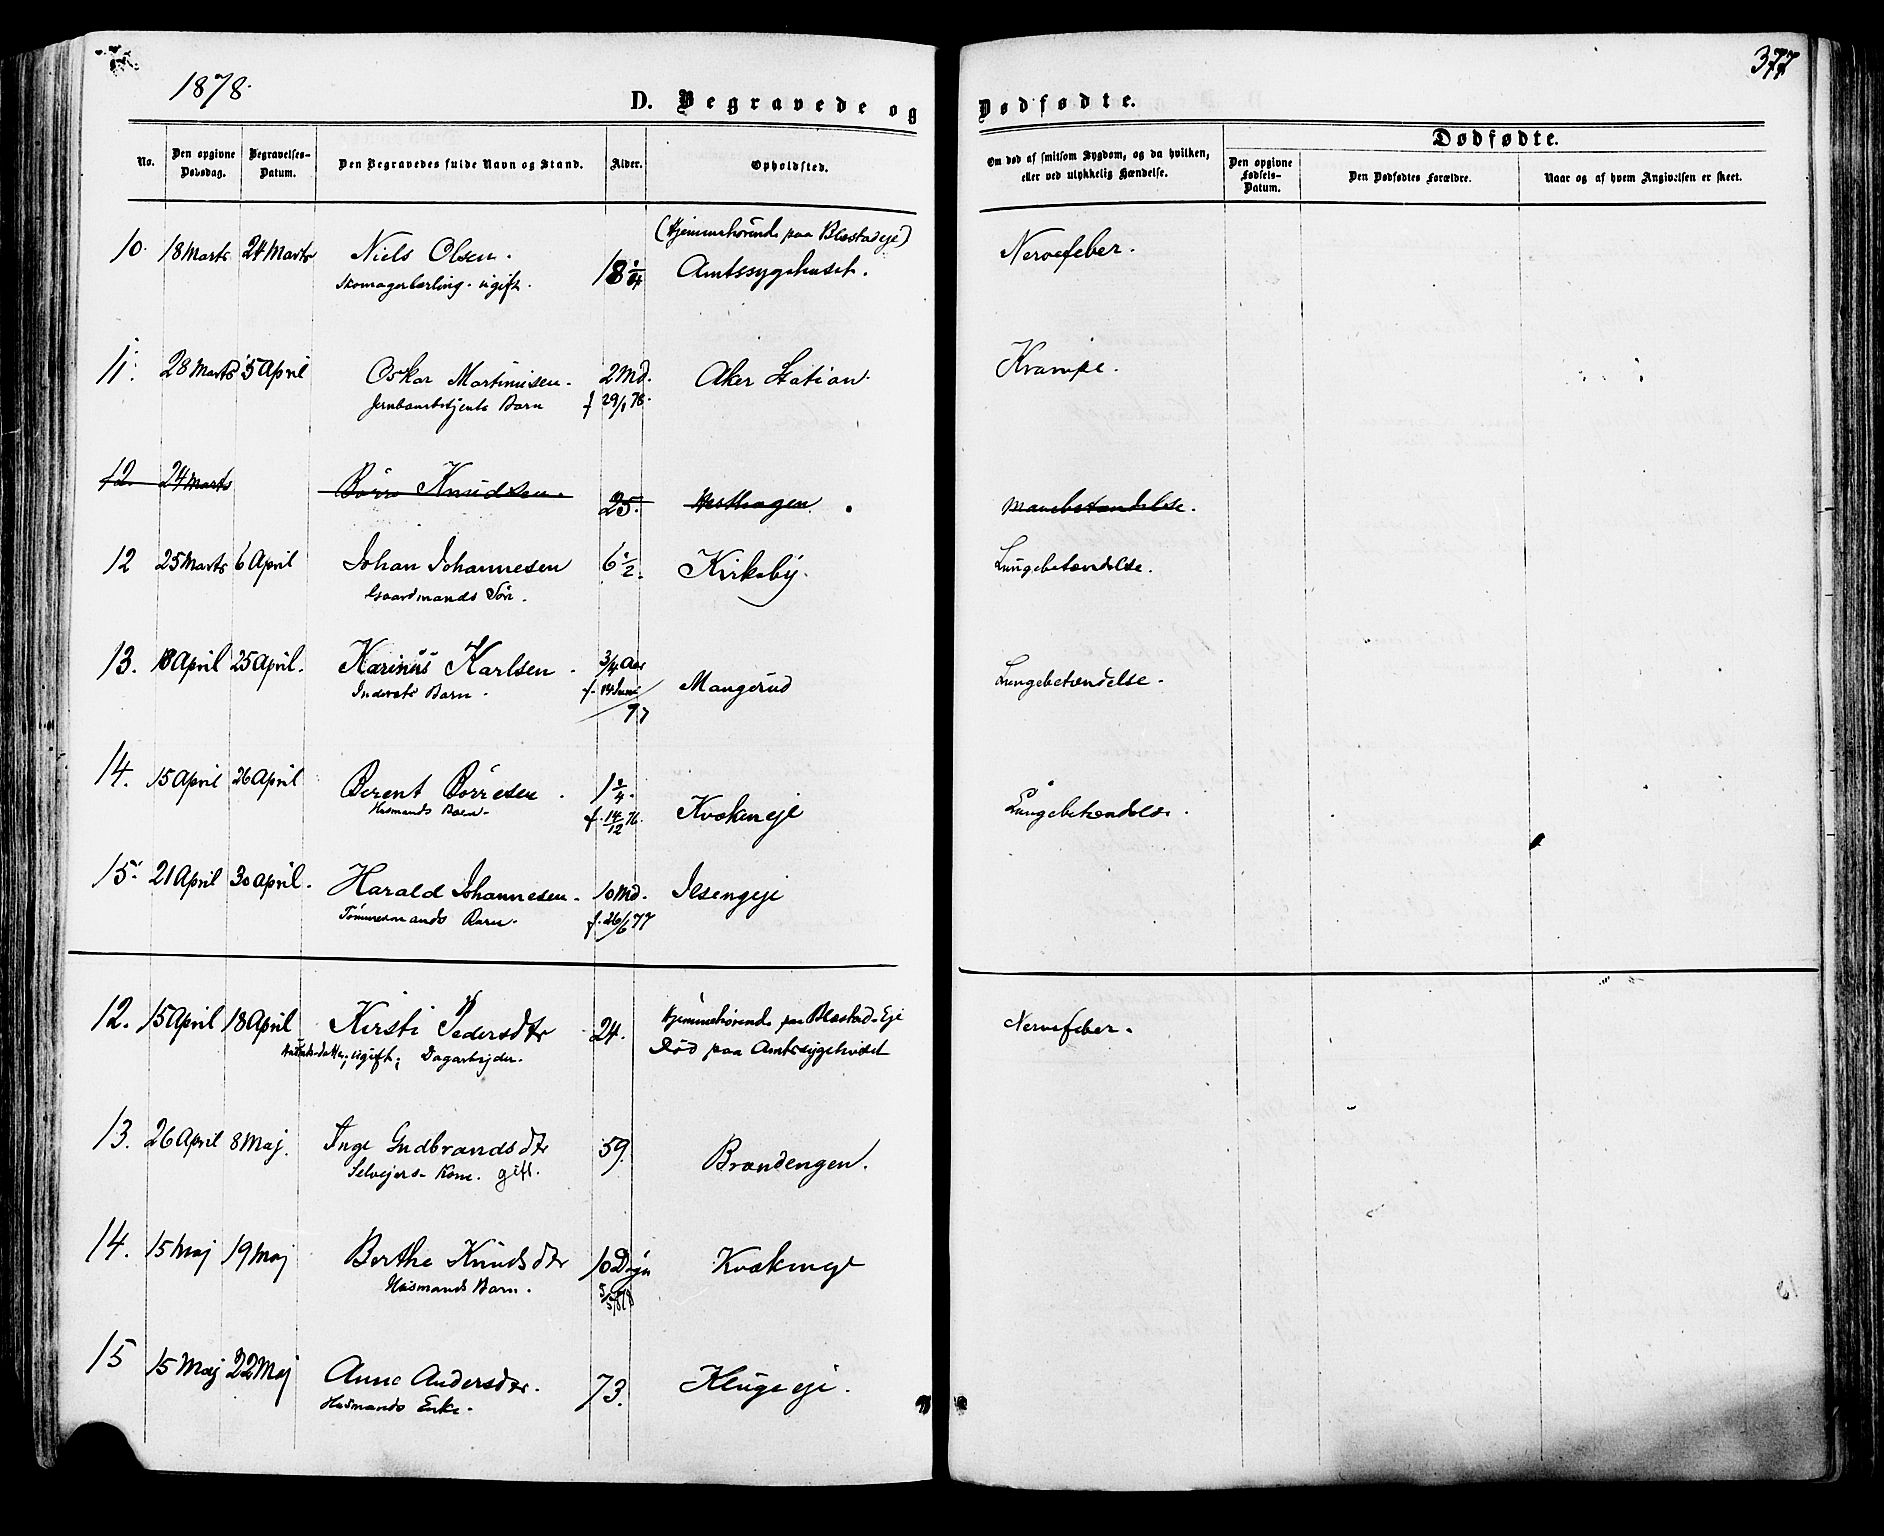 1878.
377
D. Begravede og Dødfødte.
No.
Den opgivne Dødsdag.
Begravelses-Datum.
Den Begravedes fulde Navn og Stand.
Alder.
Opholdsted.
Om død af smitsom Sygdom, og da hvilken, eller ved ulykkelig Hændelse.
Dødfødte.
Den opgivne Fødsels-Datum.
Den Dødfødtes Forældre.
Naar og af hvem Angivelsen er skeet.
(Hjemmehørende paa Blæstadeje)
10. 18 Marts 24 Marts Niels Olsen. 18 1/4 Amtssygehuset. Nervefeber.
Skomagerlærling. ugift.
11. 28 Marts 5 April Oskar Martinusen. 2 Md. Aker Station. Krampe.
Jernbanebetjents Barn f 29/1 78.
12. 24 Marts Børre Knudsen. 25. Hesthagen. Mavebetændelse.
12 25 Marts 6 April Johan Johannesen 6 1/2. Kirkeby. Lungebetændelse.
Gaardmands Søn.
13. 18 April 25 April. Karinus Karlsen. 3/4 Aar Mangerud Lungebetændelse.
Indersts Barn. f. 14 Juni / 77
14. 15 April 26 April Berent Børresen. 1 1/4. Kvækeneje Lungebetændelse.
Husmands Barn. f. 14/12 76.
15. 21 April 30 April. Harald Johannesen. 10 Md. Ilsengeje
Tømmermands Barn. f. 26/6 77
12. 15 April 18 April Kirsti Pedersdtr 24. Hjemmehørende paa Blæstad-Eje Nervefeber.
ugift; Dagarbejder. Død paa Amtssygehuset
13. 26 April 8 Maj. Inge Gudbrandsdtr 59. Brændengen.
Selvejers Kone. gift.
14. 15 Maj 19 Maj Berthe Knudsdtr 10 Døgn Kvækeneje
Husmands Barn. 5/5 1878
15 15 Maj 22 Maj Anne Andersdtr. 73. Klugeeje.
Husmands Enke.